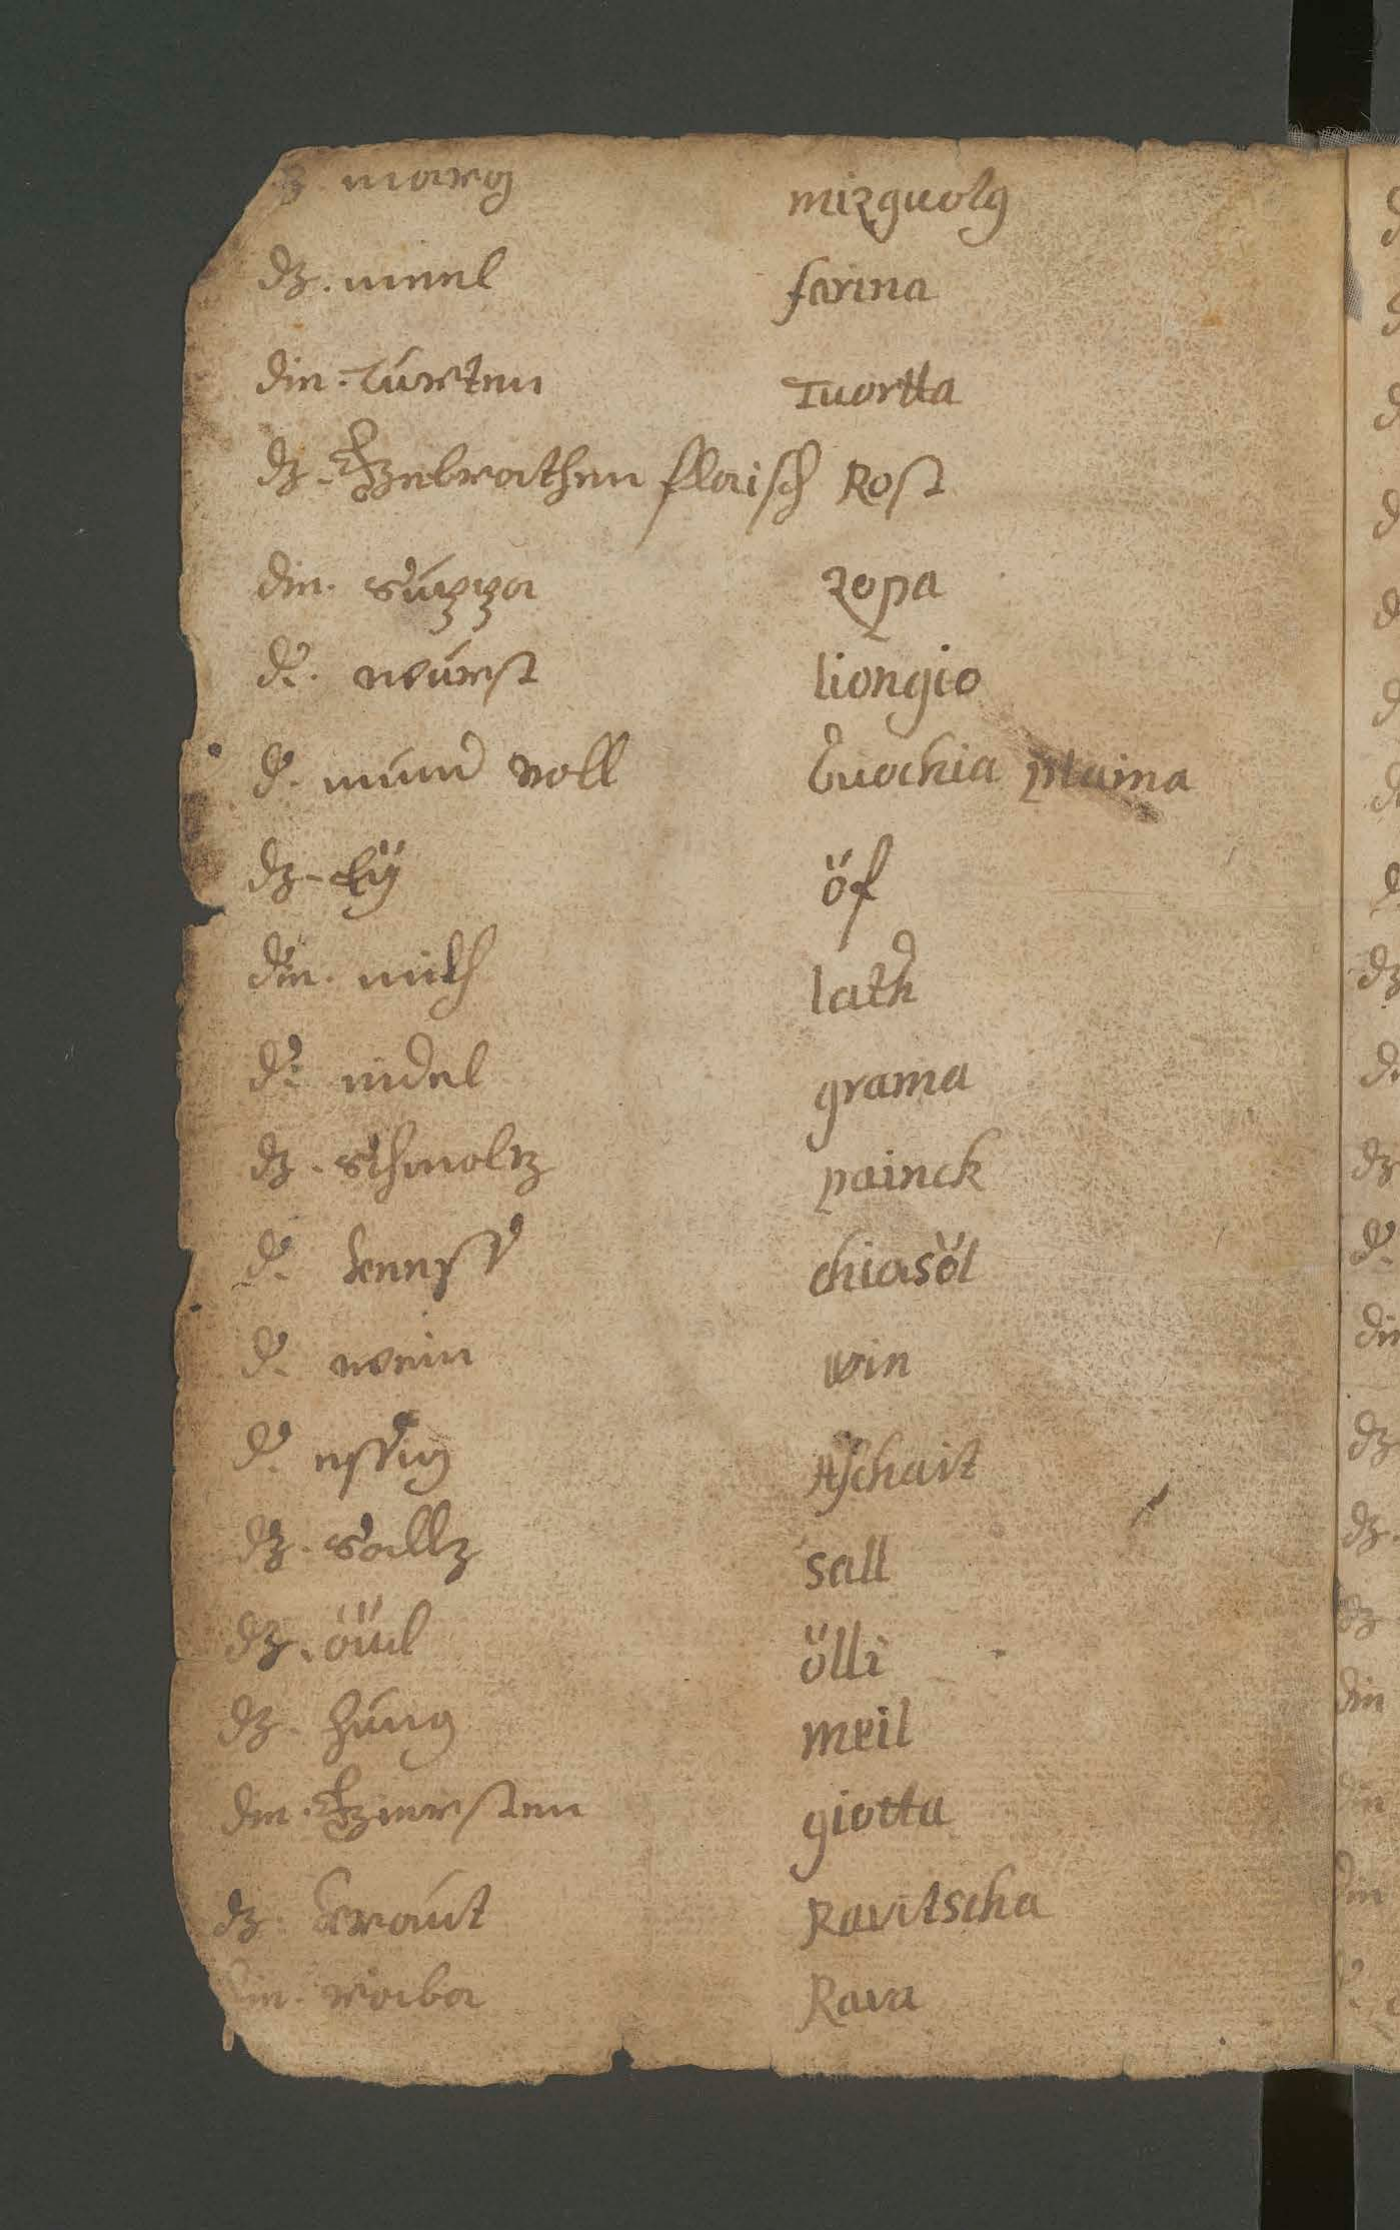 dz. marg mizguolg
dz. meel farina
die. Turten Tuortta
dz. Gebrathen flaisch Rost
die. Suppa zopa
d'. wurst liongio
d'. mund voll buochia plaina
dz. Eÿ öf
die. milch lath
d'. nidel grama
dz. schmaltz painck
d'. keess chiasöl
d'. wein win
d'. essig Aschait
dz. Salltz sall
dz. öwl ölli
dz. hung meil
die. Giersten giotta
dz. kraut Ravitscha
die. Raba Rava